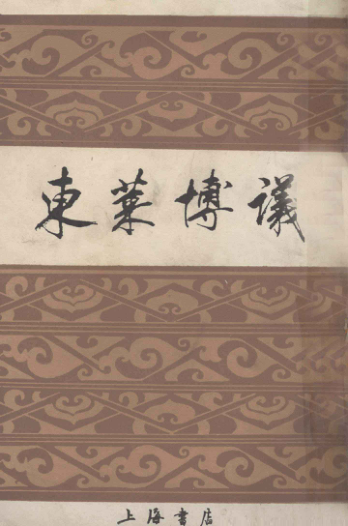 東萊博議
上海書店